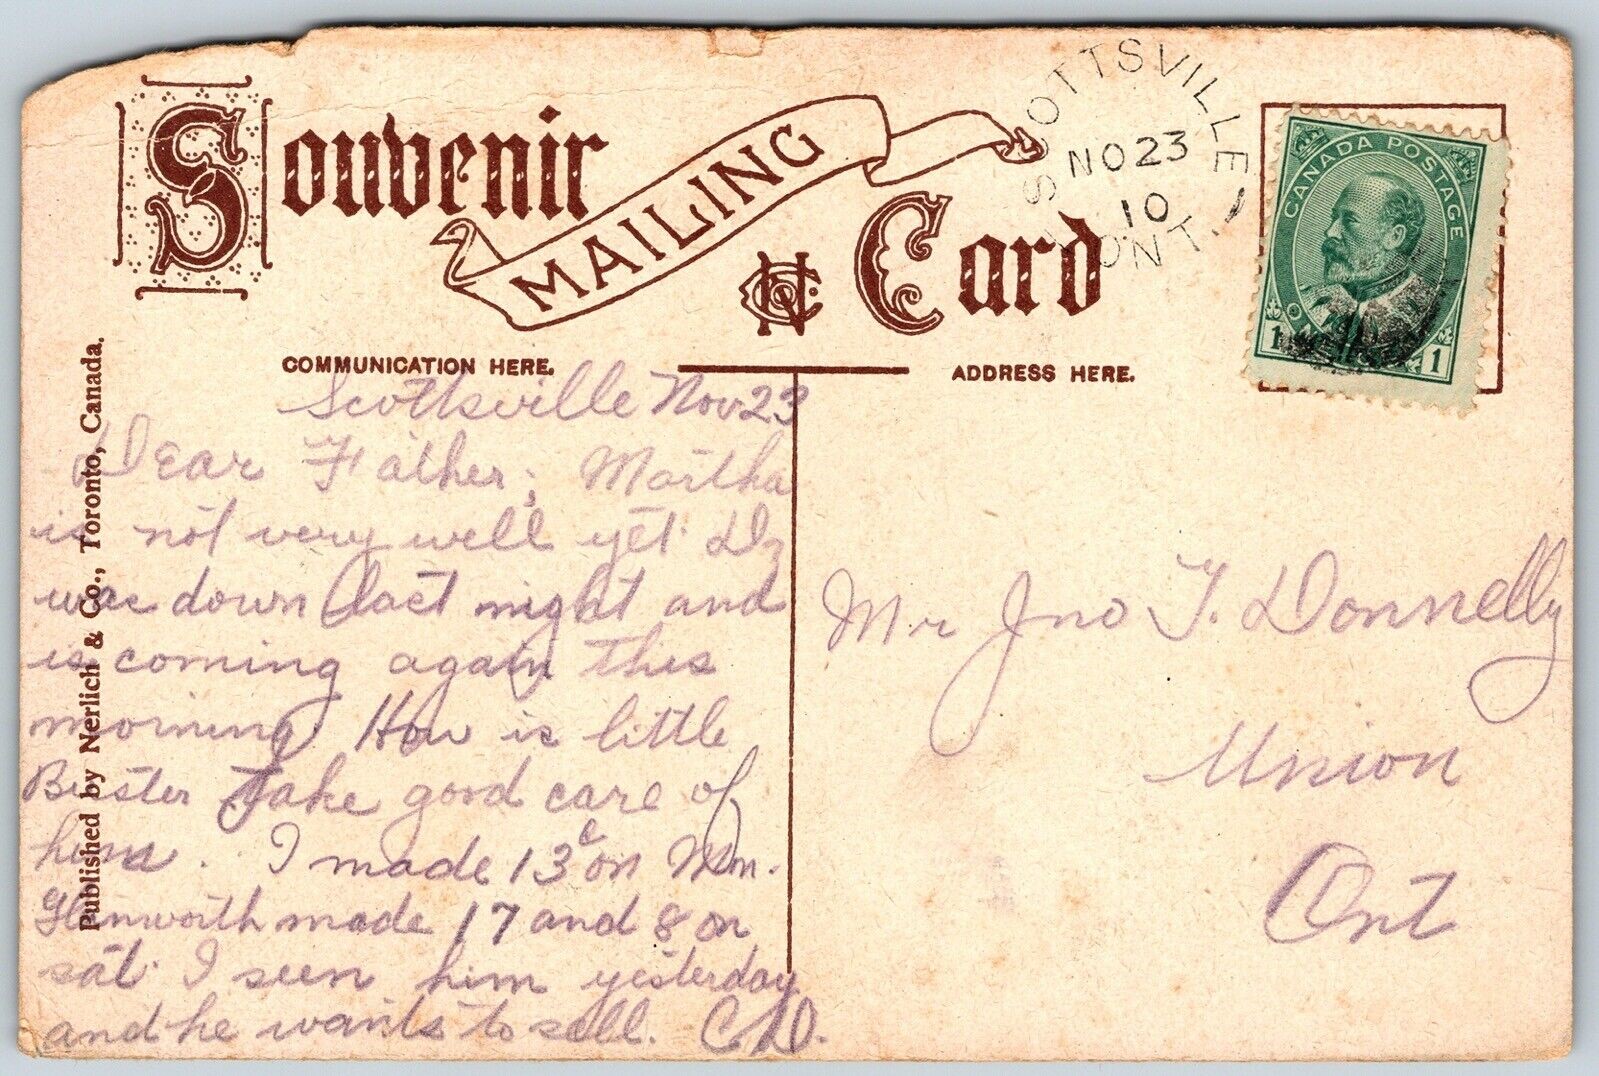 Souvenir
MAILING
Card
SCOTTSVILLE
NO 23
10
ONT.
CANADA POSTAGE
1 1
COMMUNICATION HERE.
ADDRESS HERE.
Published by Nerlich & Co., Toronto, Canada.
Scottsville Nov 23
Dear Father; Martha
is not very well yet. Dr
was down last night and
is coming again this
morning. How is little
Buster Take good care of
him. I made 13c on Wm.
Glenworth made 17 and 8 on
sat. I seen him yesterday
and he wants to sell. C.D.
Mr Jno T. Donnelly
Union
Ont